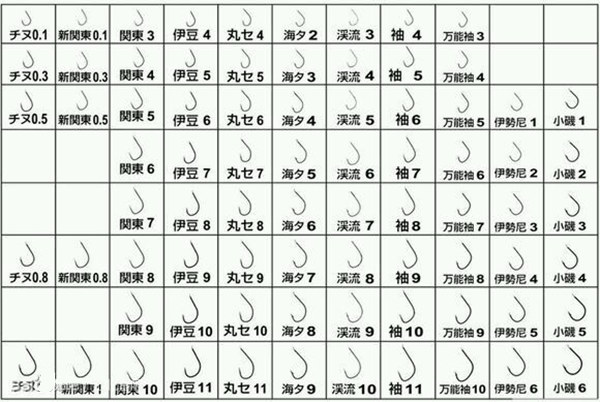 チヌ0.1 新関東0.1 関東3 伊豆4 丸セ4 海タ2 渓流3 袖4 万能袖3
チヌ0.3 新関東0.3 関東4 伊豆5 丸セ5 海タ3 渓流4 袖5 万能袖4
チヌ0.5 新関東0.5 関東5 伊豆6 丸セ6 海タ4 渓流5 袖6 万能袖5 伊勢尼1 小磯1
関東6 伊豆7 丸セ7 海タ5 渓流6 袖7 万能袖6 伊勢尼2 小磯2
関東7 伊豆8 丸セ8 海タ6 渓流7 袖8 万能袖7 伊勢尼3 小磯3
チヌ0.8 新関東0.8 関東8 伊豆9 丸セ9 海タ7 渓流8 袖9 万能袖8 伊勢尼4 小磯4
関東9 伊豆10 丸セ10 海タ8 渓流9 袖10 万能袖9 伊勢尼5 小磯5
チヌ 新関東1 関東10 伊豆11 丸セ11 海タ9 渓流10 袖11 万能袖10 伊勢尼6 小磯6